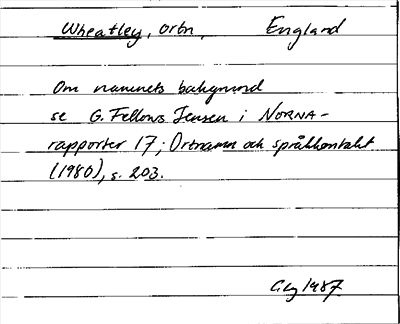 Wheatley, ortn, England
Om namnets bakgrund
se G. Fellows Jensen i NORNA-
rapporter 17; Ortnamn och språkkontakt
(1980), s. 203.
1987